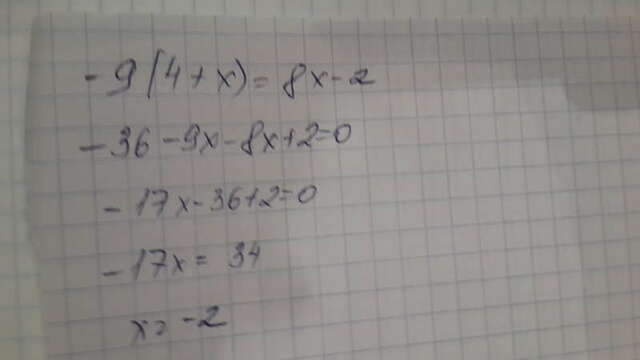 -9(4+x)=8x-2
-36-9x-8x+2=0
-17x-36+2=0
-17x=34
x=-2